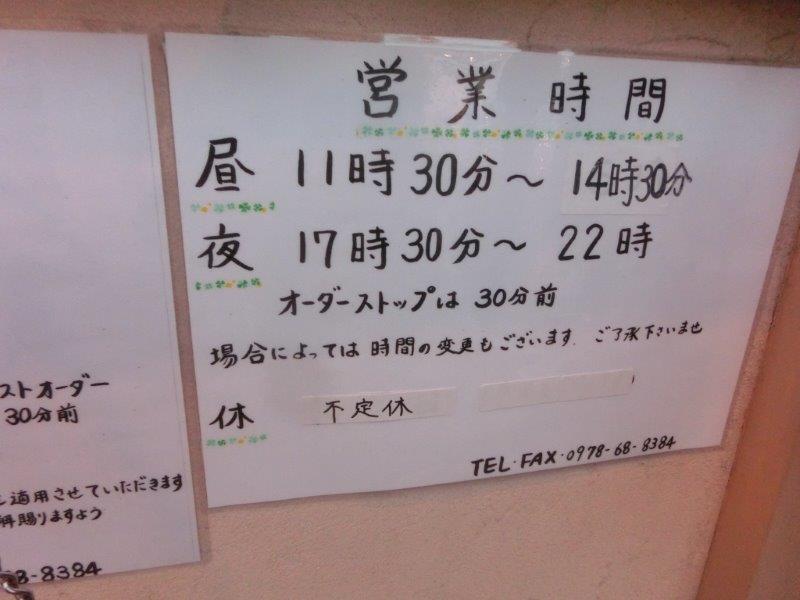 営業時間
昼 11時30分～14時30分
夜 17時30分～22時
オーダーストップは 30分前
場合によっては 時間の変更もございます. ご了承下さいませ
休 不定休
TEL・FAX・0978-68-8384
ストオーダー
30分前
適用させていただきます
賜りますよう
8-8384